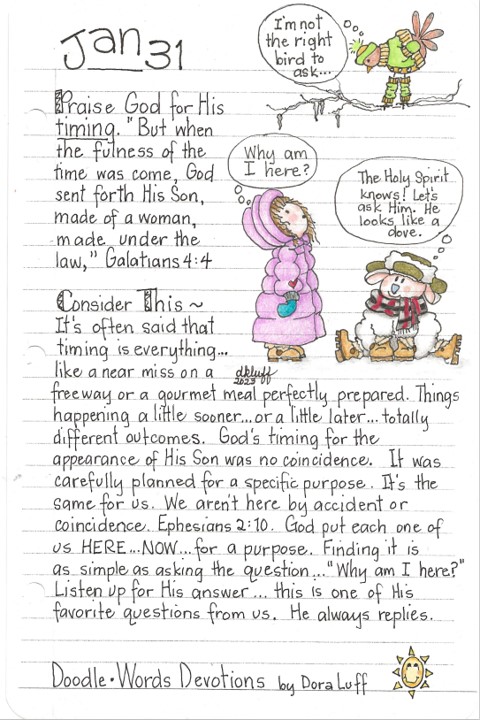 Jan 31
I'm not
the right
bird to
ask...
Praise God for His
timing. "But when
the fulness of the
time was come, God
sent forth His Son,
made of a woman,
made under the
law," Galatians 4:4
Why am
I here?
The Holy Spirit
knows! Let's
ask Him. He
looks like a
dove.
Consider This ~
It's often said that
timing is everything...
like a near miss on a
dkluff
2023
freeway or a gourmet meal perfectly prepared. Things
happening a little sooner...or a little later... totally
different outcomes. God's timing for the
appearance of His Son was no coincidence. It was
carefully planned for a specific purpose. It's the
same for us. We aren't here by accident or
coincidence. Ephesians 2:10. God put each one of
us HERE...NOW...for a purpose. Finding it is
as simple as asking the question..."Why am I here?"
Listen up for His answer... this is one of His
favorite questions from us. He always replies.
Doodle • Words Devotions by Dora Luff